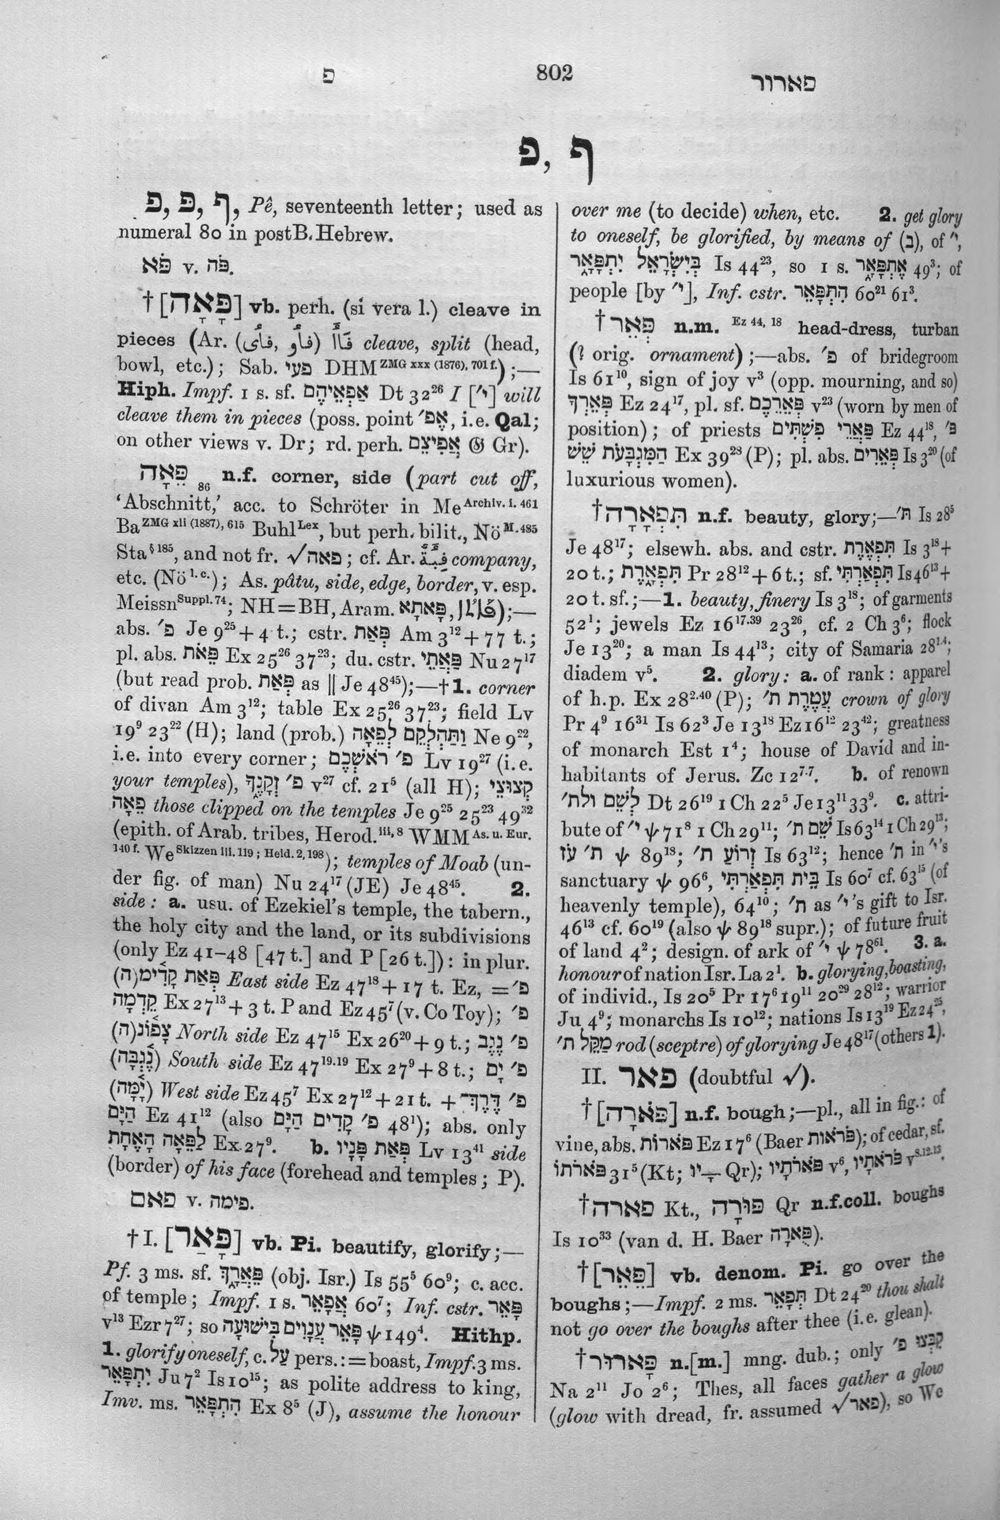 פ
802
פארור
פ, ף
פ, פּ, ף, Pê, seventeenth letter; used as
numeral 80 in postB. Hebrew.
פֹּא v. פֹּה.
†[פָּאָה] vb. perh. (si vera l.) cleave in
pieces (Ar. cleave, split (head,
bowl, etc.); Sab. פאי DHM ZMG xxx (1876), 701 f.);—
Hiph. Impf. 1 s. sf. אַפְאֵיהֶם Dt 32²⁶ I [י׳] will
cleave them in pieces (poss. point אֶפְ׳, i.e. Qal;
on other views v. Dr; rd. perh. אֲפִיצֵם 𝔊 Gr).
פֵּאָה 86 n.f. corner, side (part cut off,
‘Abschnitt,’ acc. to Schröter in Me Archiv. i. 461
Ba ZMG xli (1887), 615 Buhl Lex, but perh. bilit., Nö M. 485
Sta § 185, and not fr. √פאה; cf. Ar. company,
etc. (Nö l.c.); As. pâtu, side, edge, border, v. esp.
Meissn Suppl. 74; NH = BH, Aram. פָּאתָא,);—
abs. פ׳ Je 9²⁵ + 4 t.; cstr. פְּאַת Am 3¹² + 77 t.;
pl. abs. פֵּאֹת Ex 25²⁶ 37²³; du. cstr. פַּאֲתֵי Nu 27¹⁷
(but read prob. פְּאַת as || Je 48⁴⁵);—†1. corner
of divan Am 3¹²; table Ex 25²⁶ 37²³; field Lv
19⁹ 23²² (H); land (prob.) וַתַּחְלְקֵם לְפֵאָה Ne 9²²,
i.e. into every corner; פ׳ רֹאשְׁכֶם Lv 19²⁷ (i.e.
your temples), פ׳ זְקָנֶךָ v²⁷ cf. 21⁵ (all H); קְצוּצֵי
פֵאָה those clipped on the temples Je 9²⁵ 25²³ 49³²
(epith. of Arab. tribes, Herod. iii, 8 WMM As. u. Eur.
140 f. We Skizzen iii. 119; Heid. 2, 198); temples of Moab (un-
der fig. of man) Nu 24¹⁷ (JE) Je 48⁴⁵. 2.
side: a. usu. of Ezekiel's temple, the tabern.,
the holy city and the land, or its subdivisions
(only Ez 41–48 [47 t.] and P [26 t.]): in plur.
פְּאַת קָדִימָ(ה) East side Ez 47¹⁸ + 17 t. Ez, = פ׳
קֵדְמָה Ex 27¹³ + 3 t. P and Ez 45⁷ (v. Co Toy); פ׳
צָפוֹנָ(ה) North side Ez 47¹⁵ Ex 26²⁰ + 9 t.; פ׳ נֶגֶב
(נֶגְבָּה) South side Ez 47¹⁹·¹⁹ Ex 27⁹ + 8 t.; פ׳ יָם
(יָמָּה) West side Ez 45⁷ Ex 27¹² + 21 t. + פ׳ דֶּרֶךְ־
הַיָּם Ez 41¹² (also פ׳ קָדִים הַיָּם 48¹); abs. only
לַפֵּאָה הָאֶחָת Ex 27⁹. b. פְּאַת פָּנָיו Lv 13⁴¹ side
(border) of his face (forehead and temples; P).
פאם v. פימה.
†I. [פָּאַר] vb. Pi. beautify, glorify;—
Pf. 3 ms. sf. פֵּאֲרָךְ (obj. Isr.) Is 55⁵ 60⁹; c. acc.
of temple; Impf. 1 s. אֲפָאֵר 60⁷; Inf. cstr. פָּאֵר
v¹³ Ezr 7²⁷; so פָּאֵר עֲנָוִים בִּישׁוּעָה ψ 149⁴. Hithp.
1. glorify oneself, c. עַל pers.: = boast, Impf. 3 ms.
יִתְפָּאֵר Ju 7² Is 10¹⁵; as polite address to king,
Imv. ms. הִתְפָּאֵר Ex 8⁵ (J), assume the honour
over me (to decide) when, etc. 2. get glory
to oneself, be glorified, by means of (בְּ), of י׳,
בְּיִשְׂרָאֵל יִתְפָּאָר Is 44²³, so 1 s. אֶתְפָּאָר 49³; of
people [by י׳], Inf. cstr. הִתְפָּאֵר 60²¹ 61³.
†פְּאֵר n.m. Ez 44, 18 head-dress, turban
(? orig. ornament);—abs. פ׳ of bridegroom
Is 61¹⁰, sign of joy v³ (opp. mourning, and so)
פְּאֵרְךָ Ez 24¹⁷, pl. sf. פְּאֵרֵכֶם v²³ (worn by men of
position); of priests פַּאֲרֵי פִשְׁתִּים Ez 44¹⁸, פ׳
הַמִּגְבָּעֹת שֵׁשׁ Ex 39²⁸ (P); pl. abs. פְּאֵרִים Is 3²⁰ (of
luxurious women).
†תִּפְאָרָה n.f. beauty, glory;—ת׳ Is 28⁵
Je 48¹⁷; elsewh. abs. and cstr. תִּפְאֶרֶת Is 3¹⁸ +
20 t.; תִּפְאָרֶת Pr 28¹² + 6 t.; sf. תִּפְאַרְתִּי Is 46¹³ +
20 t. sf.;—1. beauty, finery Is 3¹⁸; of garments
52¹; jewels Ez 16¹⁷·³⁹ 23²⁶, cf. 2 Ch 3⁶; flock
Je 13²⁰; a man Is 44¹³; city of Samaria 28¹·⁴;
diadem v⁵. 2. glory: a. of rank: apparel
of h.p. Ex 28²·⁴⁰ (P); עֲטֶרֶת ת׳ crown of glory
Pr 4⁹ 16³¹ Is 62³ Je 13¹⁸ Ez 16¹² 23⁴²; greatness
of monarch Est 1⁴; house of David and in-
habitants of Jerus. Zc 12⁷·⁷. b. of renown
לְשֵׁם וּלְת׳ Dt 26¹⁹ 1 Ch 22⁵ Je 13¹¹ 33⁹. c. attri-
bute of י׳ ψ 71⁸ 1 Ch 29¹¹; שֵׁם ת׳ Is 63¹⁴ 1 Ch 29¹³;
עֹז ת׳ ψ 89¹⁸; זְרוֹעַ ת׳ Is 63¹²; hence ת׳ in י׳'s
sanctuary ψ 96⁶, בֵּית תִּפְאַרְתִּי Is 60⁷ cf. 63¹⁵ (of
heavenly temple), 64¹⁰; ת׳ as י׳'s gift to Isr.
46¹³ cf. 60¹⁹ (also ψ 89¹⁸ supr.); of future fruit
of land 4²; design. of ark of י׳ ψ 78⁶¹. 3. a.
honour of nation Isr. La 2¹. b. glorying, boasting,
of individ., Is 20⁵ Pr 17⁶ 19¹¹ 20²⁹ 28¹²; warrior
Ju 4⁹; monarchs Is 10¹²; nations Is 13¹⁹ Ez 24²⁵,
מַקֵּל ת׳ rod (sceptre) of glorying Je 48¹⁷ (others 1).
II. פאר (doubtful √).
†[פֹּארָה] n.f. bough;—pl., all in fig.: of
vine, abs. פֹּארוֹת Ez 17⁶ (Baer פֹּרֹאות); of cedar, sf.
פֹּארֹתָו 31⁵ (Kt; ־ָיו Qr); פֹּארֹתָיו v⁶, פֹּרֹאתָיו v⁸·¹²·¹³.
†פארה Kt., פּוּרָה Qr n.f.coll. boughs
Is 10³³ (van d. H. Baer פֻּארָה).
†[פֵּאֵר] vb. denom. Pi. go over the
boughs;—Impf. 2 ms. תְפָאֵר Dt 24²⁰ thou shalt
not go over the boughs after thee (i.e. glean).
†פָּארוּר n.[m.] mng. dub.; only קִבְּצוּ פ׳
Na 2¹¹ Jo 2⁶; Thes, all faces gather a glow
(glow with dread, fr. assumed √פאר), so We